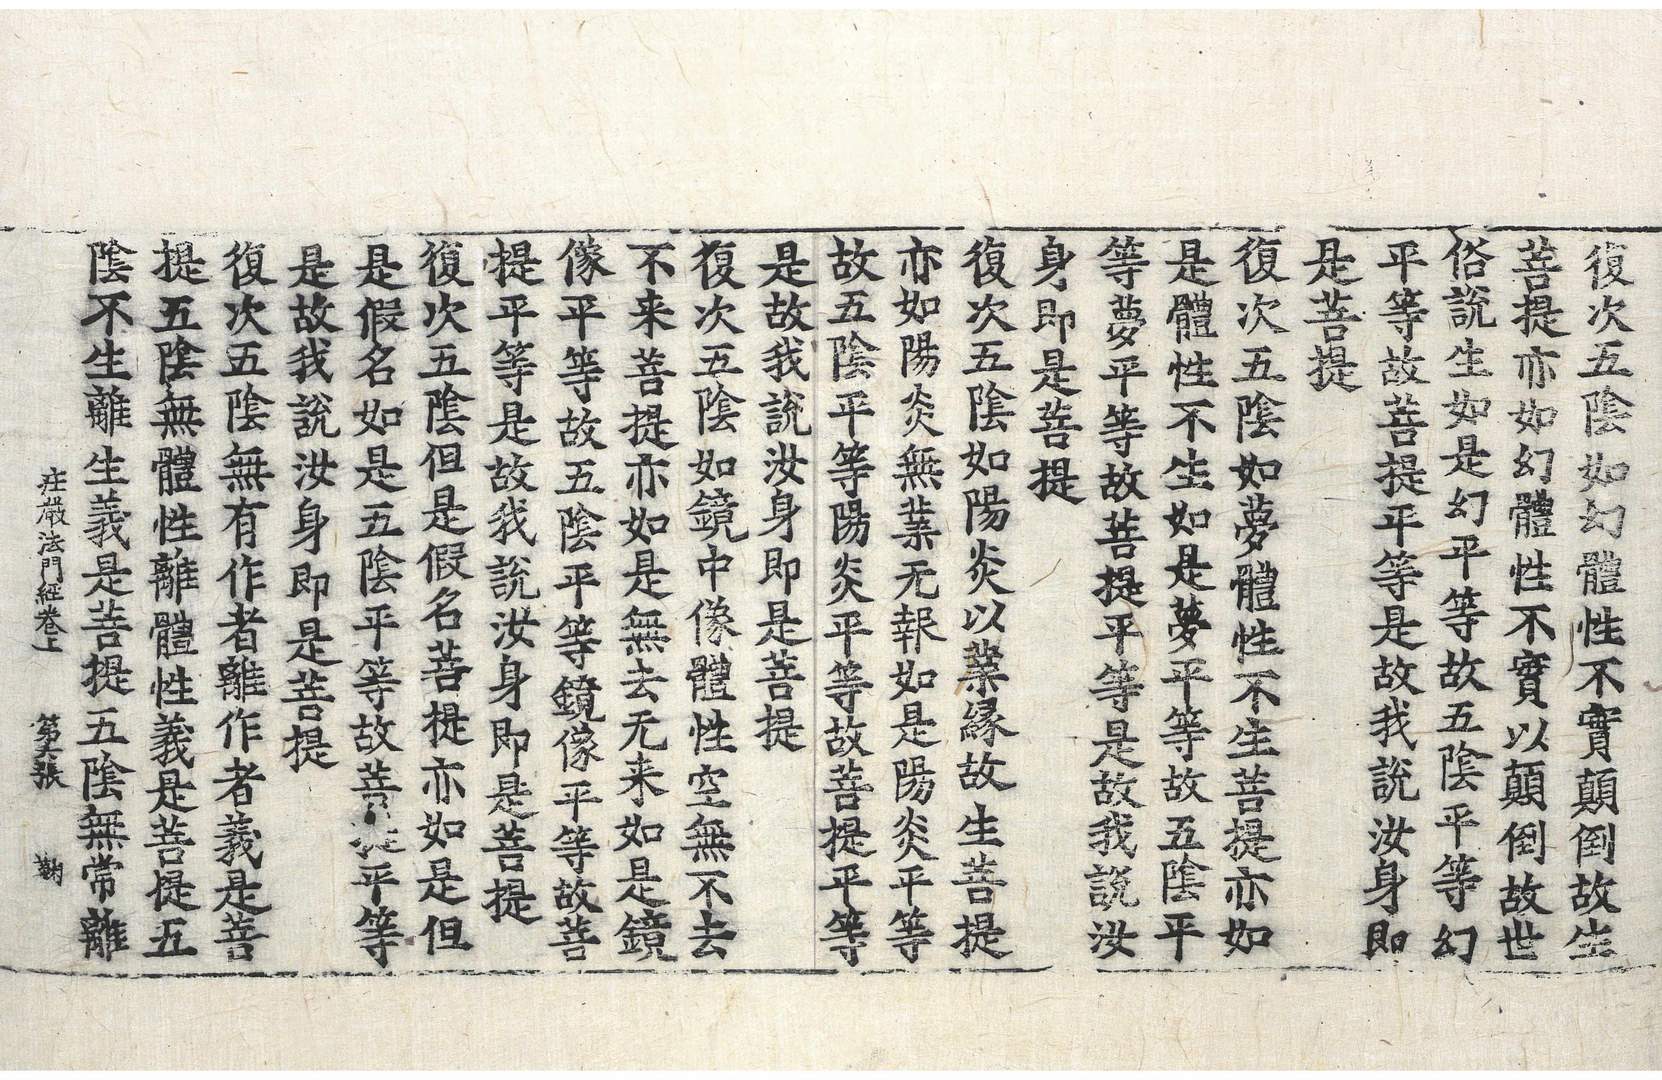 復次五陰如幻體性不實顛倒故生
菩提亦如幻體性不實以顛倒故世
俗說生如是幻平等故五陰平等幻
平等故菩提平等是故我說汝身即
是菩提
復次五陰如夢體性不生菩提亦如
是體性不生如是夢平等故五陰平
等夢平等故菩提平等是故我說汝
身即是菩提
復次五陰如陽炎以業緣故生菩提
亦如陽炎無業无報如是陽炎平等
故五陰平等陽炎平等故菩提平等
是故我說汝身即是菩提
復次五陰如鏡中像體性空無不去
不来菩提亦如是無去无来如是鏡
像平等故五陰平等鏡像平等故菩
提平等是故我說汝身即是菩提
復次五陰但是假名菩提亦如是但
是假名如是五陰平等故菩提平等
是故我說汝身即是菩提
復次五陰無有作者離作者義是菩
提五陰無體性離體性義是菩提五
陰不生離生義是菩提五陰無常離
庄嚴法門經卷上 第六張 鞠